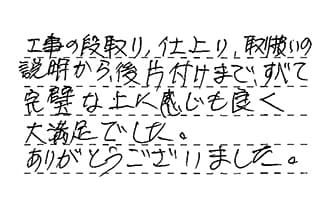 工事の段取り,仕上り,取扱いの
説明から,後片付けまで,すべて
完璧な上に感じも良く
大満足でした。
ありがとうございました。